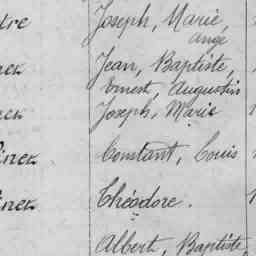 Joseph, Marie,
Ange
Jean, Baptiste,
Ernest, Augustin
Joseph, Marie
Constant, Louis
Théodore.
Albert, Baptiste,